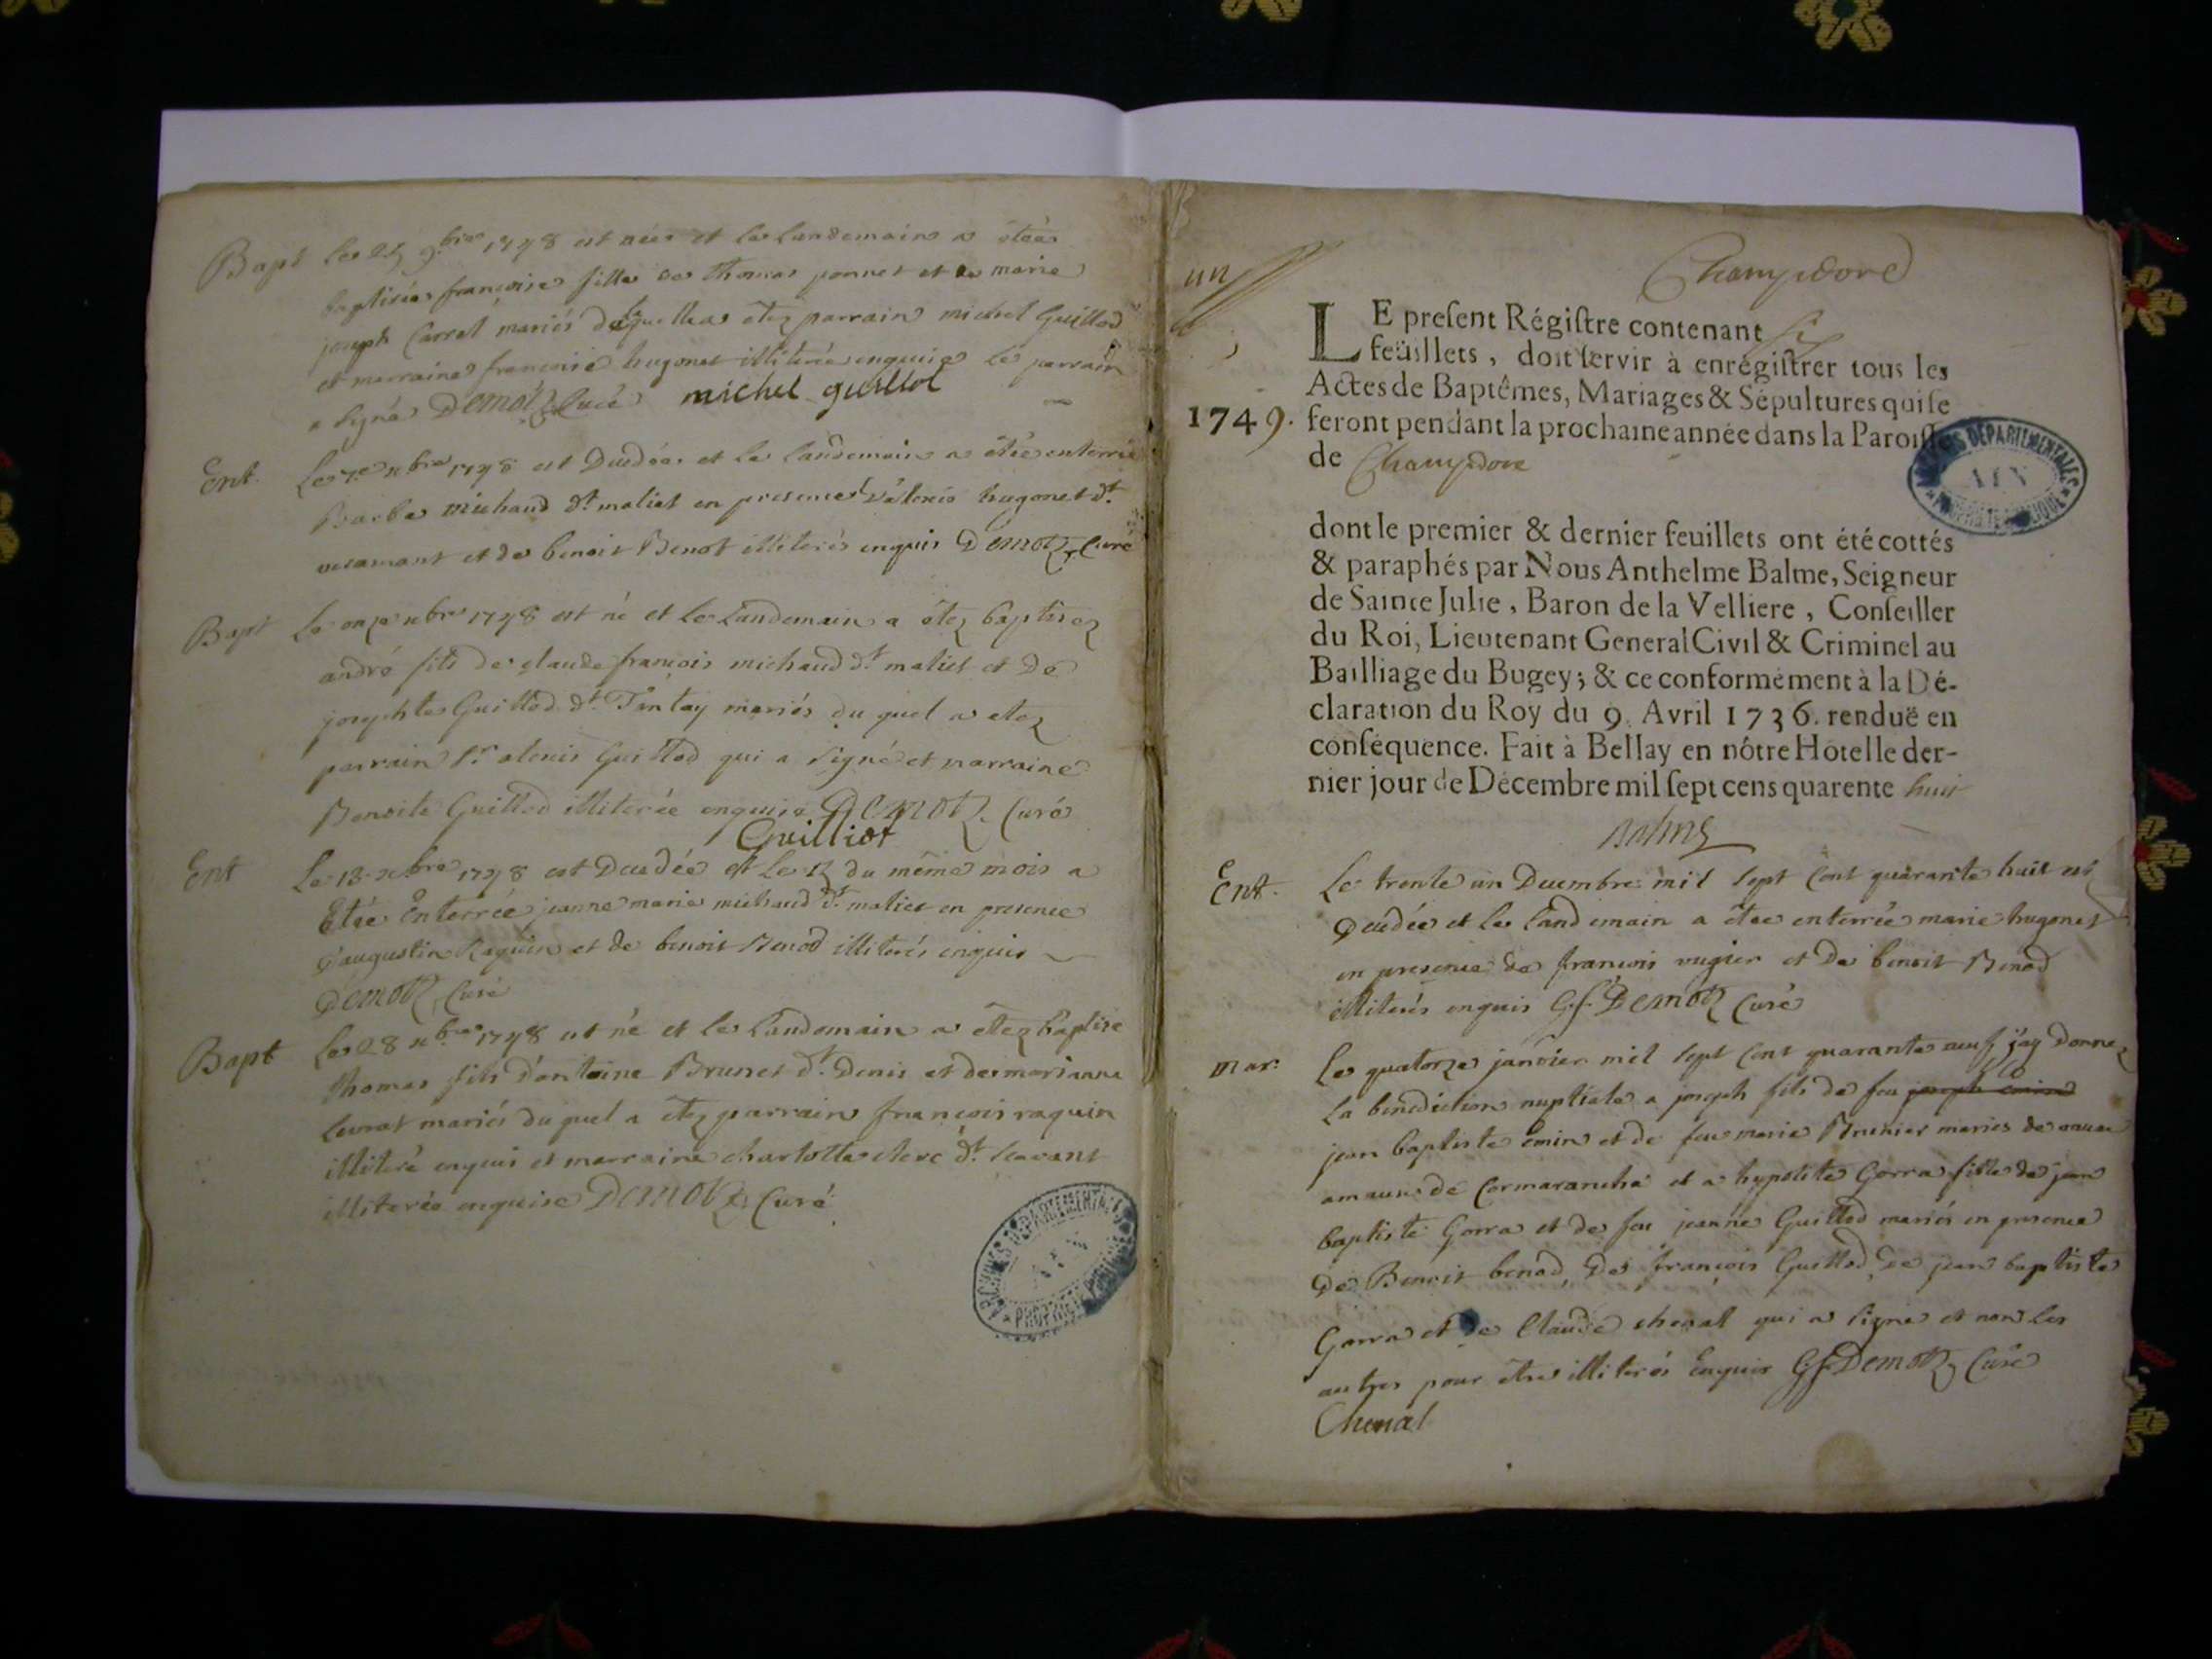 Bapt le 25 9.bre 1748 est née et le landemain a étée
baptisée françoise fille de Thomas ponnet et de marie
joseph Carrel mariés de laquelle a étez parrain michel Guillod
et marraine françoise hugonet illiterée enquise le parrain
a signé Demotz Curé michel guillot
Ent. Le 7.e xbre 1748 est Decdée et le landemain a étée enterrée
Barbe michaud dt. maliet en presence d'alexis hugonet dt.
et de benoit Benot illiterés enquis Demotz Curé
Bapt Le onze xbre 1748 est né et le Landemain a étez baptisez
andré fils de claude françois michaud dt. maliet et de
josephte Guillod dt. Tintay mariés du quel a etez
parrain Sr. alexis Guillod qui a signé et marraine
Benoite Guillod illiterée enquise Demotz Curé
Guilliot
Ent Le 13 xbre 1748 est Decdée et le du même mois a
Etée Enterrée jeanne marie michaud dt. maliet en presence
d'augustin Raquin et de benoit Benod illiterés enquis
Demotz Curé
Bapt Le 28 xbre 1748 est né et le Landemain a étez baptise
Thomas fils d'antoine Brunet dt. Denis et de marianne
Levrat mariés du quel a étez parrain françois raquin
illiteré enquis et marraine charlotte clerc dt. scavant
illiterée enquise Demotz Curé
ARCHIVES DEPARTEMENTALES
AIN
PROPRIETE PUBLIQUE
un
Champdore
LE present Régistre contenant six
feüillets, doit servir à enrégistrer tous les
Actes de Baptêmes, Mariages & Sépultures qui se
1749. feront pendant la prochaine année dans la Paroisse
de Champdore
ARCHIVES DEPARTEMENTALES
AIN
PROPRIETE PUBLIQUE
dont le premier & dernier feuillets ont été cottés
& paraphés par Nous Anthelme Balme, Seigneur
de Sainte Julie, Baron de la Velliere, Conseiller
du Roi, Lieutenant General Civil & Criminel au
Bailliage du Bugey; & ce conformément à la Dé-
claration du Roy du 9. Avril 1736. renduë en
conséquence. Fait à Bellay en nôtre Hôtel le der-
nier jour de Décembre mil sept cens quarente huit
Balme
Ent. Le trente un Decembre mil sept cent quarante huit est
Decdée et le land emain a étee enterrée marie hugonet
en presence de françois vugier et de benoit Benod
illiterés enquis G.f. Demotz Curé
mar. Le quatorze janvier mil sept cent quarante neuf j'ay donnez
la benediction nuptiale a joseph fils de feu joseph emin
jean baptiste emin et de feue marie Brunier maries de
de Cormaranche et a hypolite Gorra fille de jean
baptiste Gorra et de feu jeanne Guillod mariés en presence
de Benoit benod, de françois Guillod, de jean baptiste
Gorra et de Claude chenal qui a signe et non les
autres pour être illiterés Enquis G f Demotz Curé
Chenal